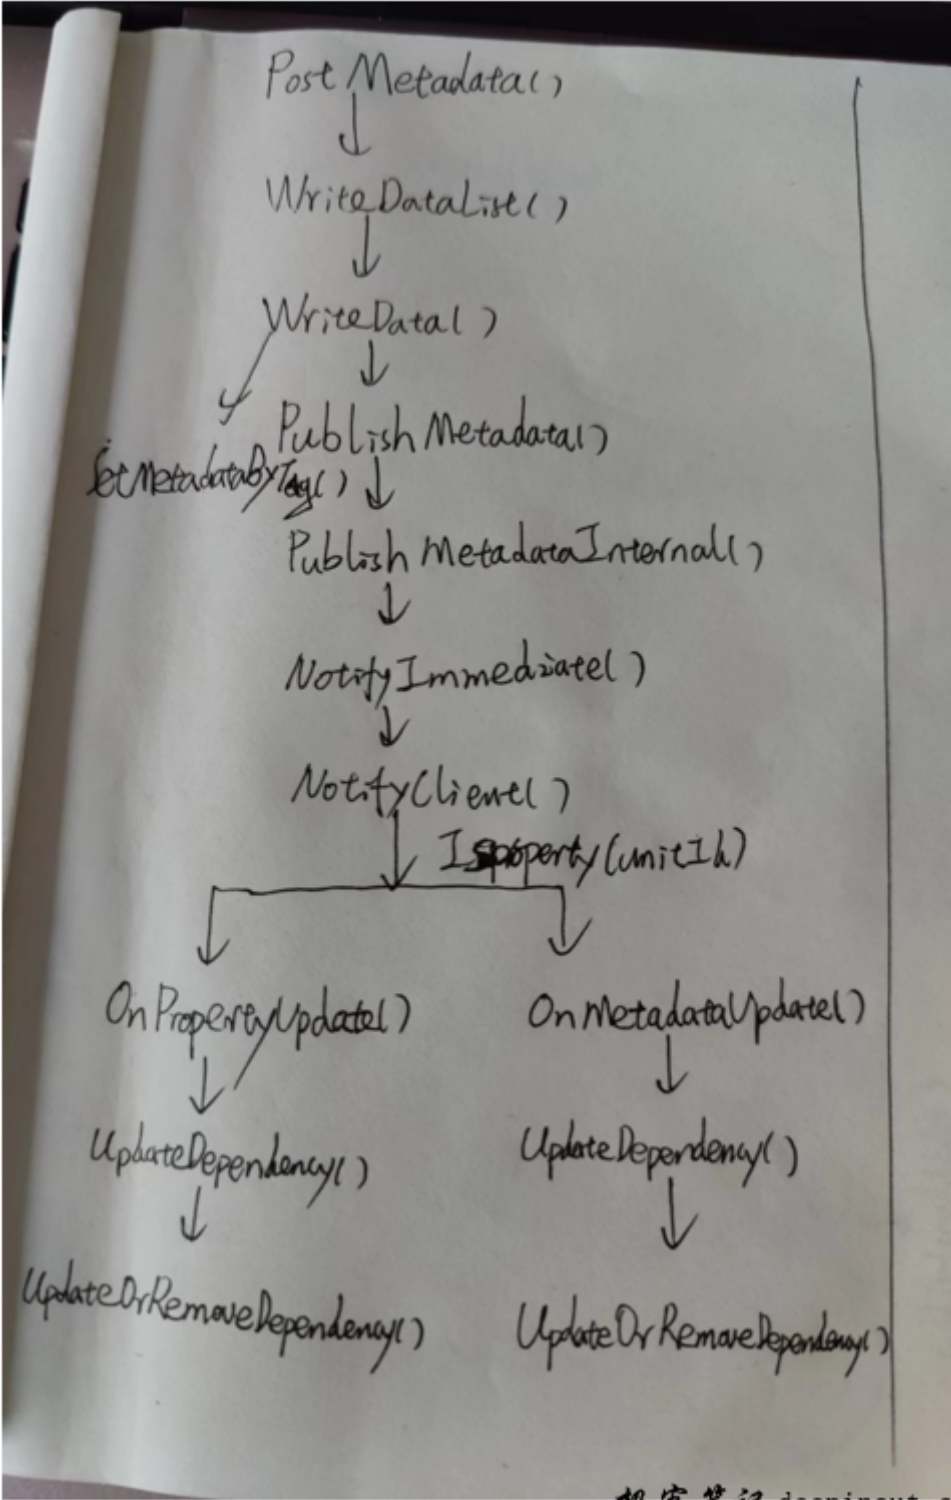 PostMetadata()
WriteDataList()
WriteData()
PublishMetadata()
SetMetadataByTag()
PublishMetadataInternal()
NotifyImmediate()
NotifyClient()
IsProperty(unitId)
OnPropertyUpdate()
OnMetadataUpdate()
UpdateDependency()
UpdateDependency()
UpdateOrRemoveDependency()
UpdateOrRemoveDependency()